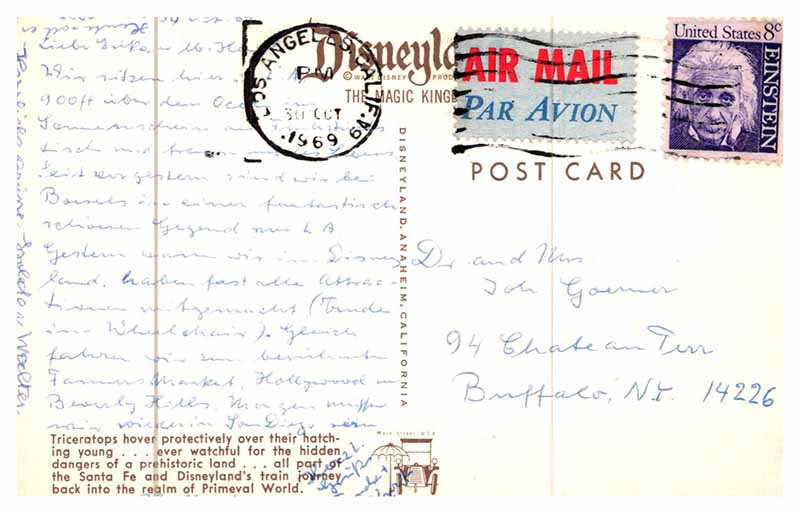 30 Oct. 69
Wir sitzen hier
900ft über dem Ocean im
Sonnenschein
tisch und freuen
Seit vorgestern sind wir bei
in einer fantastisch
schönen Gegend von LA
Gestern waren wir in Disney
land, haben fast alle Attrac-
tionen mitgemacht (Trude
im Wheelchair). Gleich
fahren wir zum berühmten
Farmers Market, Hollywood u
Beverly Hills. Morgen müssen
wir wieder in San Diego sein
Herzliche Grüße, Isolde u Walter.
Disneyland
© WALT DISNEY PROD
THE MAGIC KINGD
LOS ANGELES, CALIF.
PM
30 OCT
1969
AIR MAIL
PAR AVION
United States 8c
EINSTEIN
POST CARD
DISNEYLAND, ANAHEIM, CALIFORNIA
Dr and Mrs
Joh Goerner
94 Chateau Terr
Buffalo, N.Y. 14226
Main Street U.S.A
Triceratops hover protectively over their hatch-
ing young . . . ever watchful for the hidden
dangers of a prehistoric land . . . all part of
the Santa Fe and Disneyland's train journey
back into the realm of Primeval World.